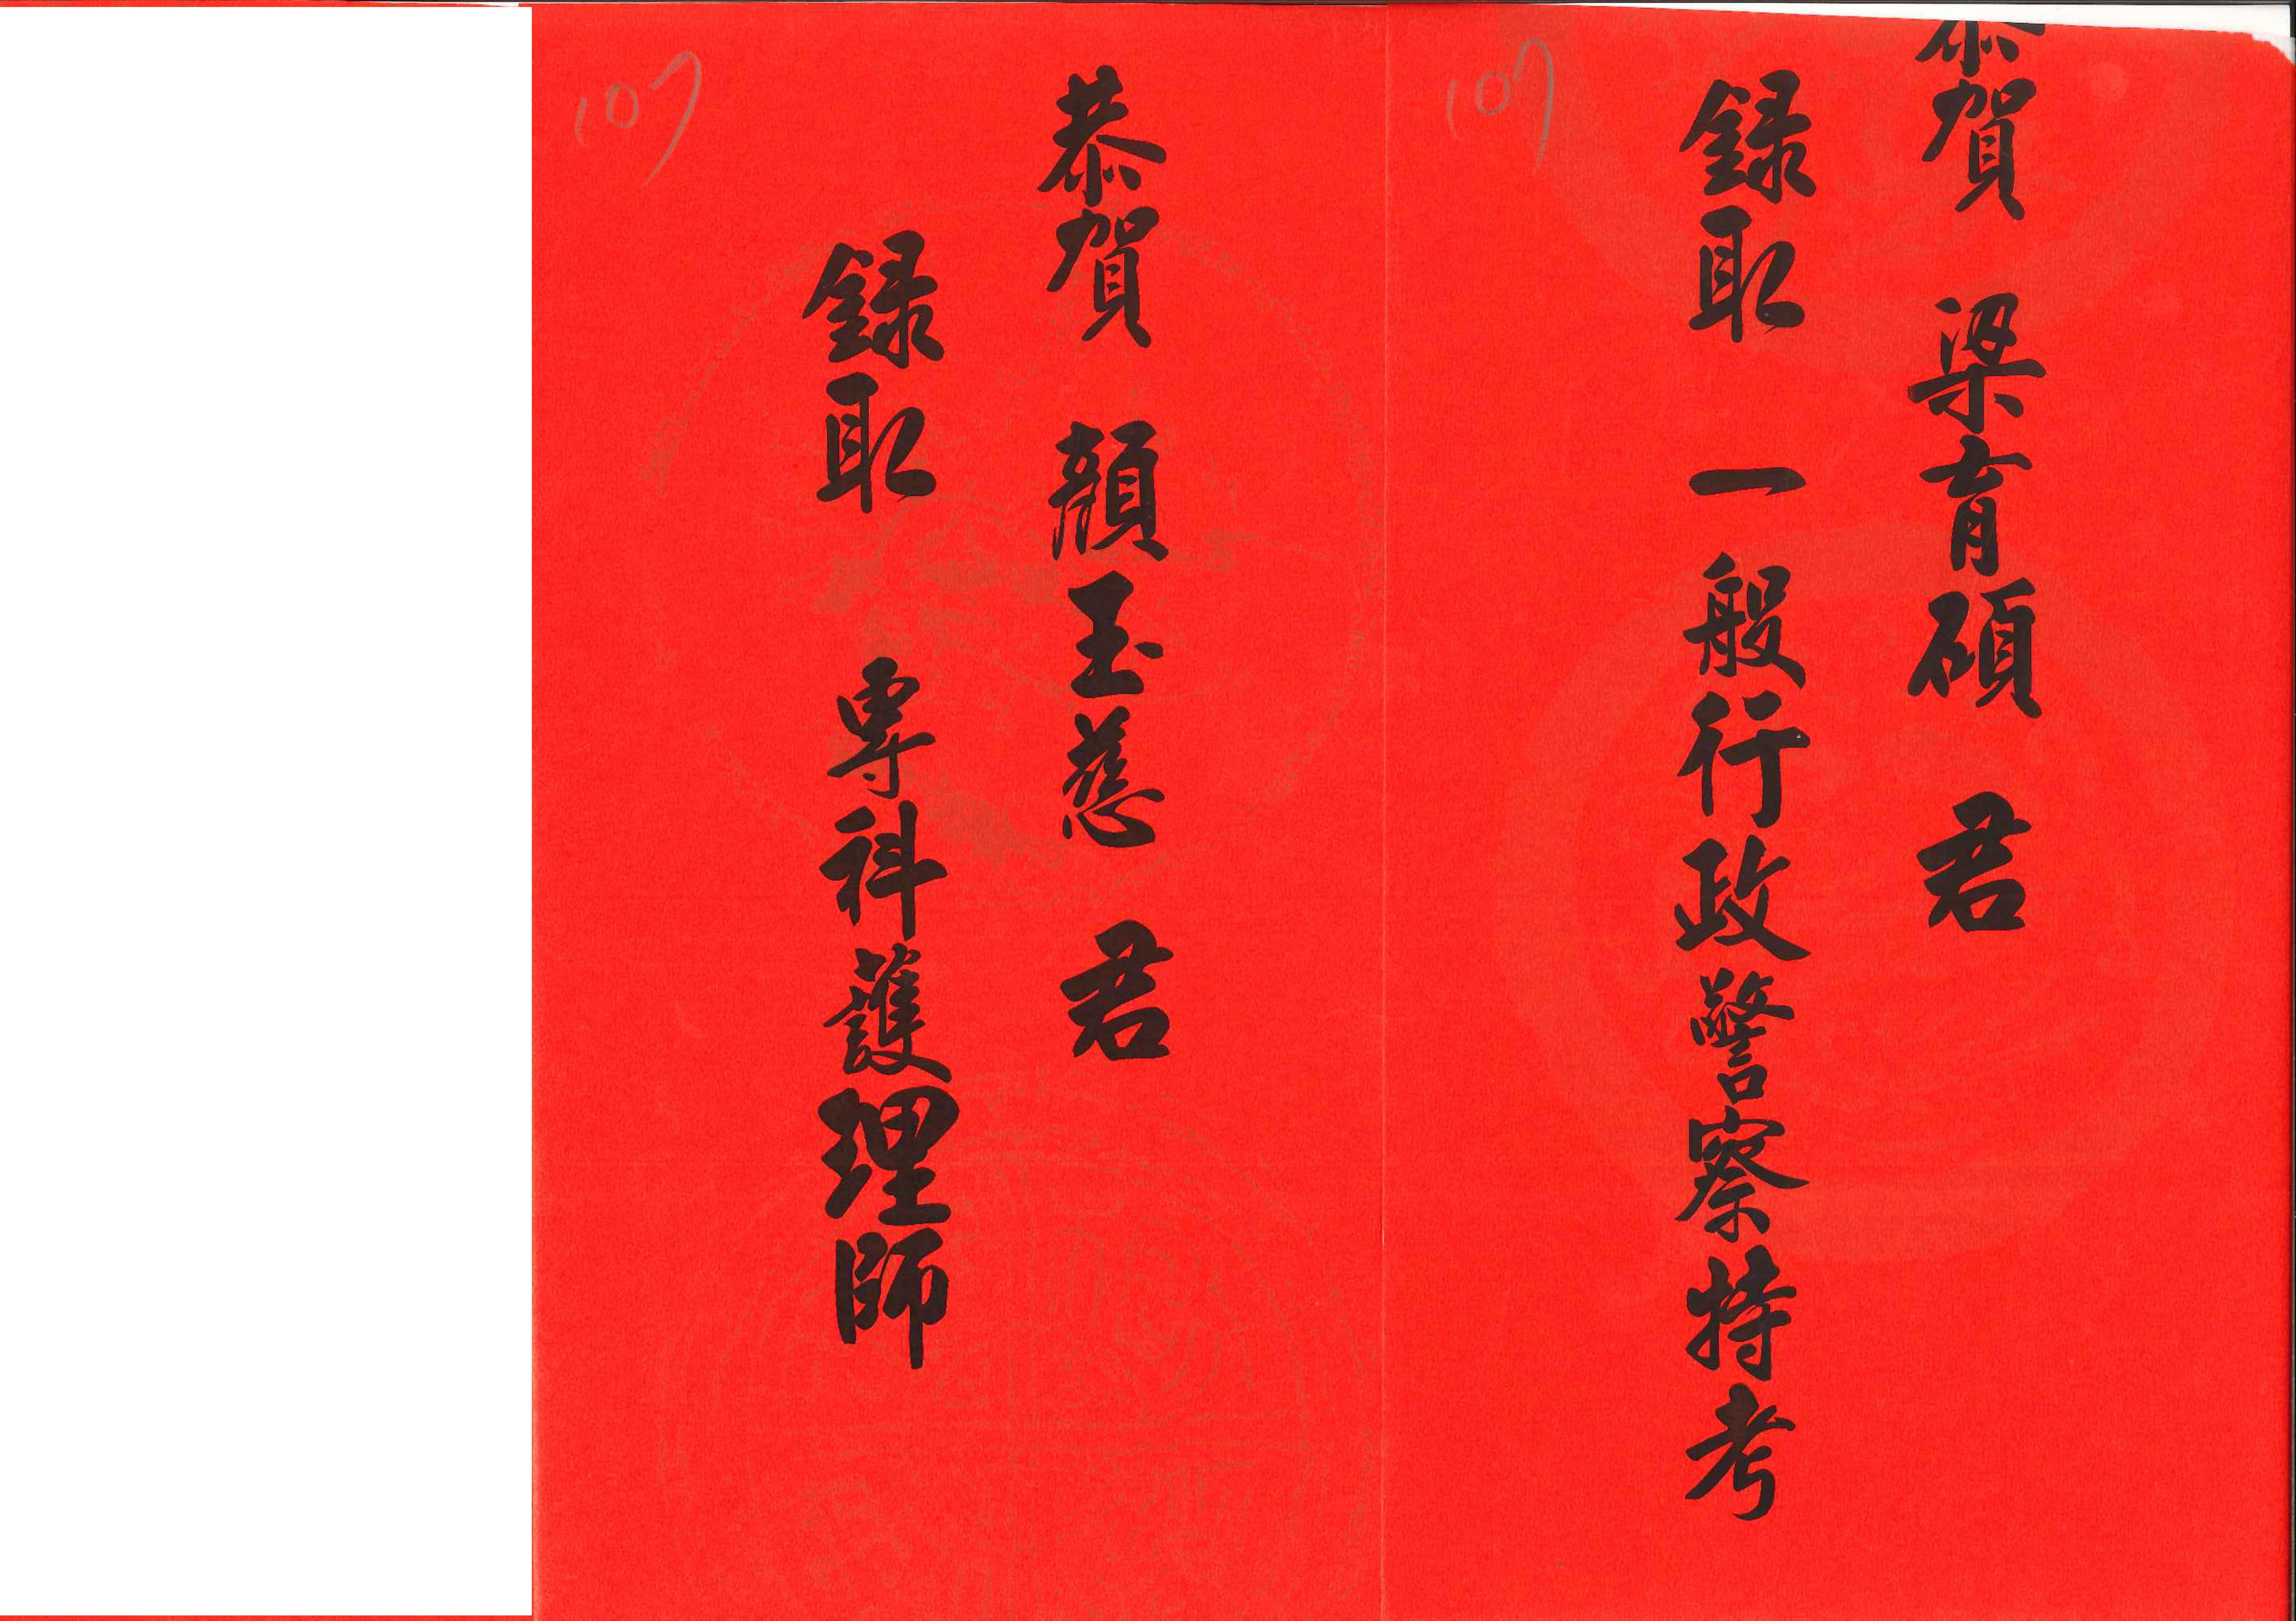 恭賀 梁育碩 君
録取 一般行政警察特考
107
恭賀 顏玉慈 君
録取 專科護理師
107